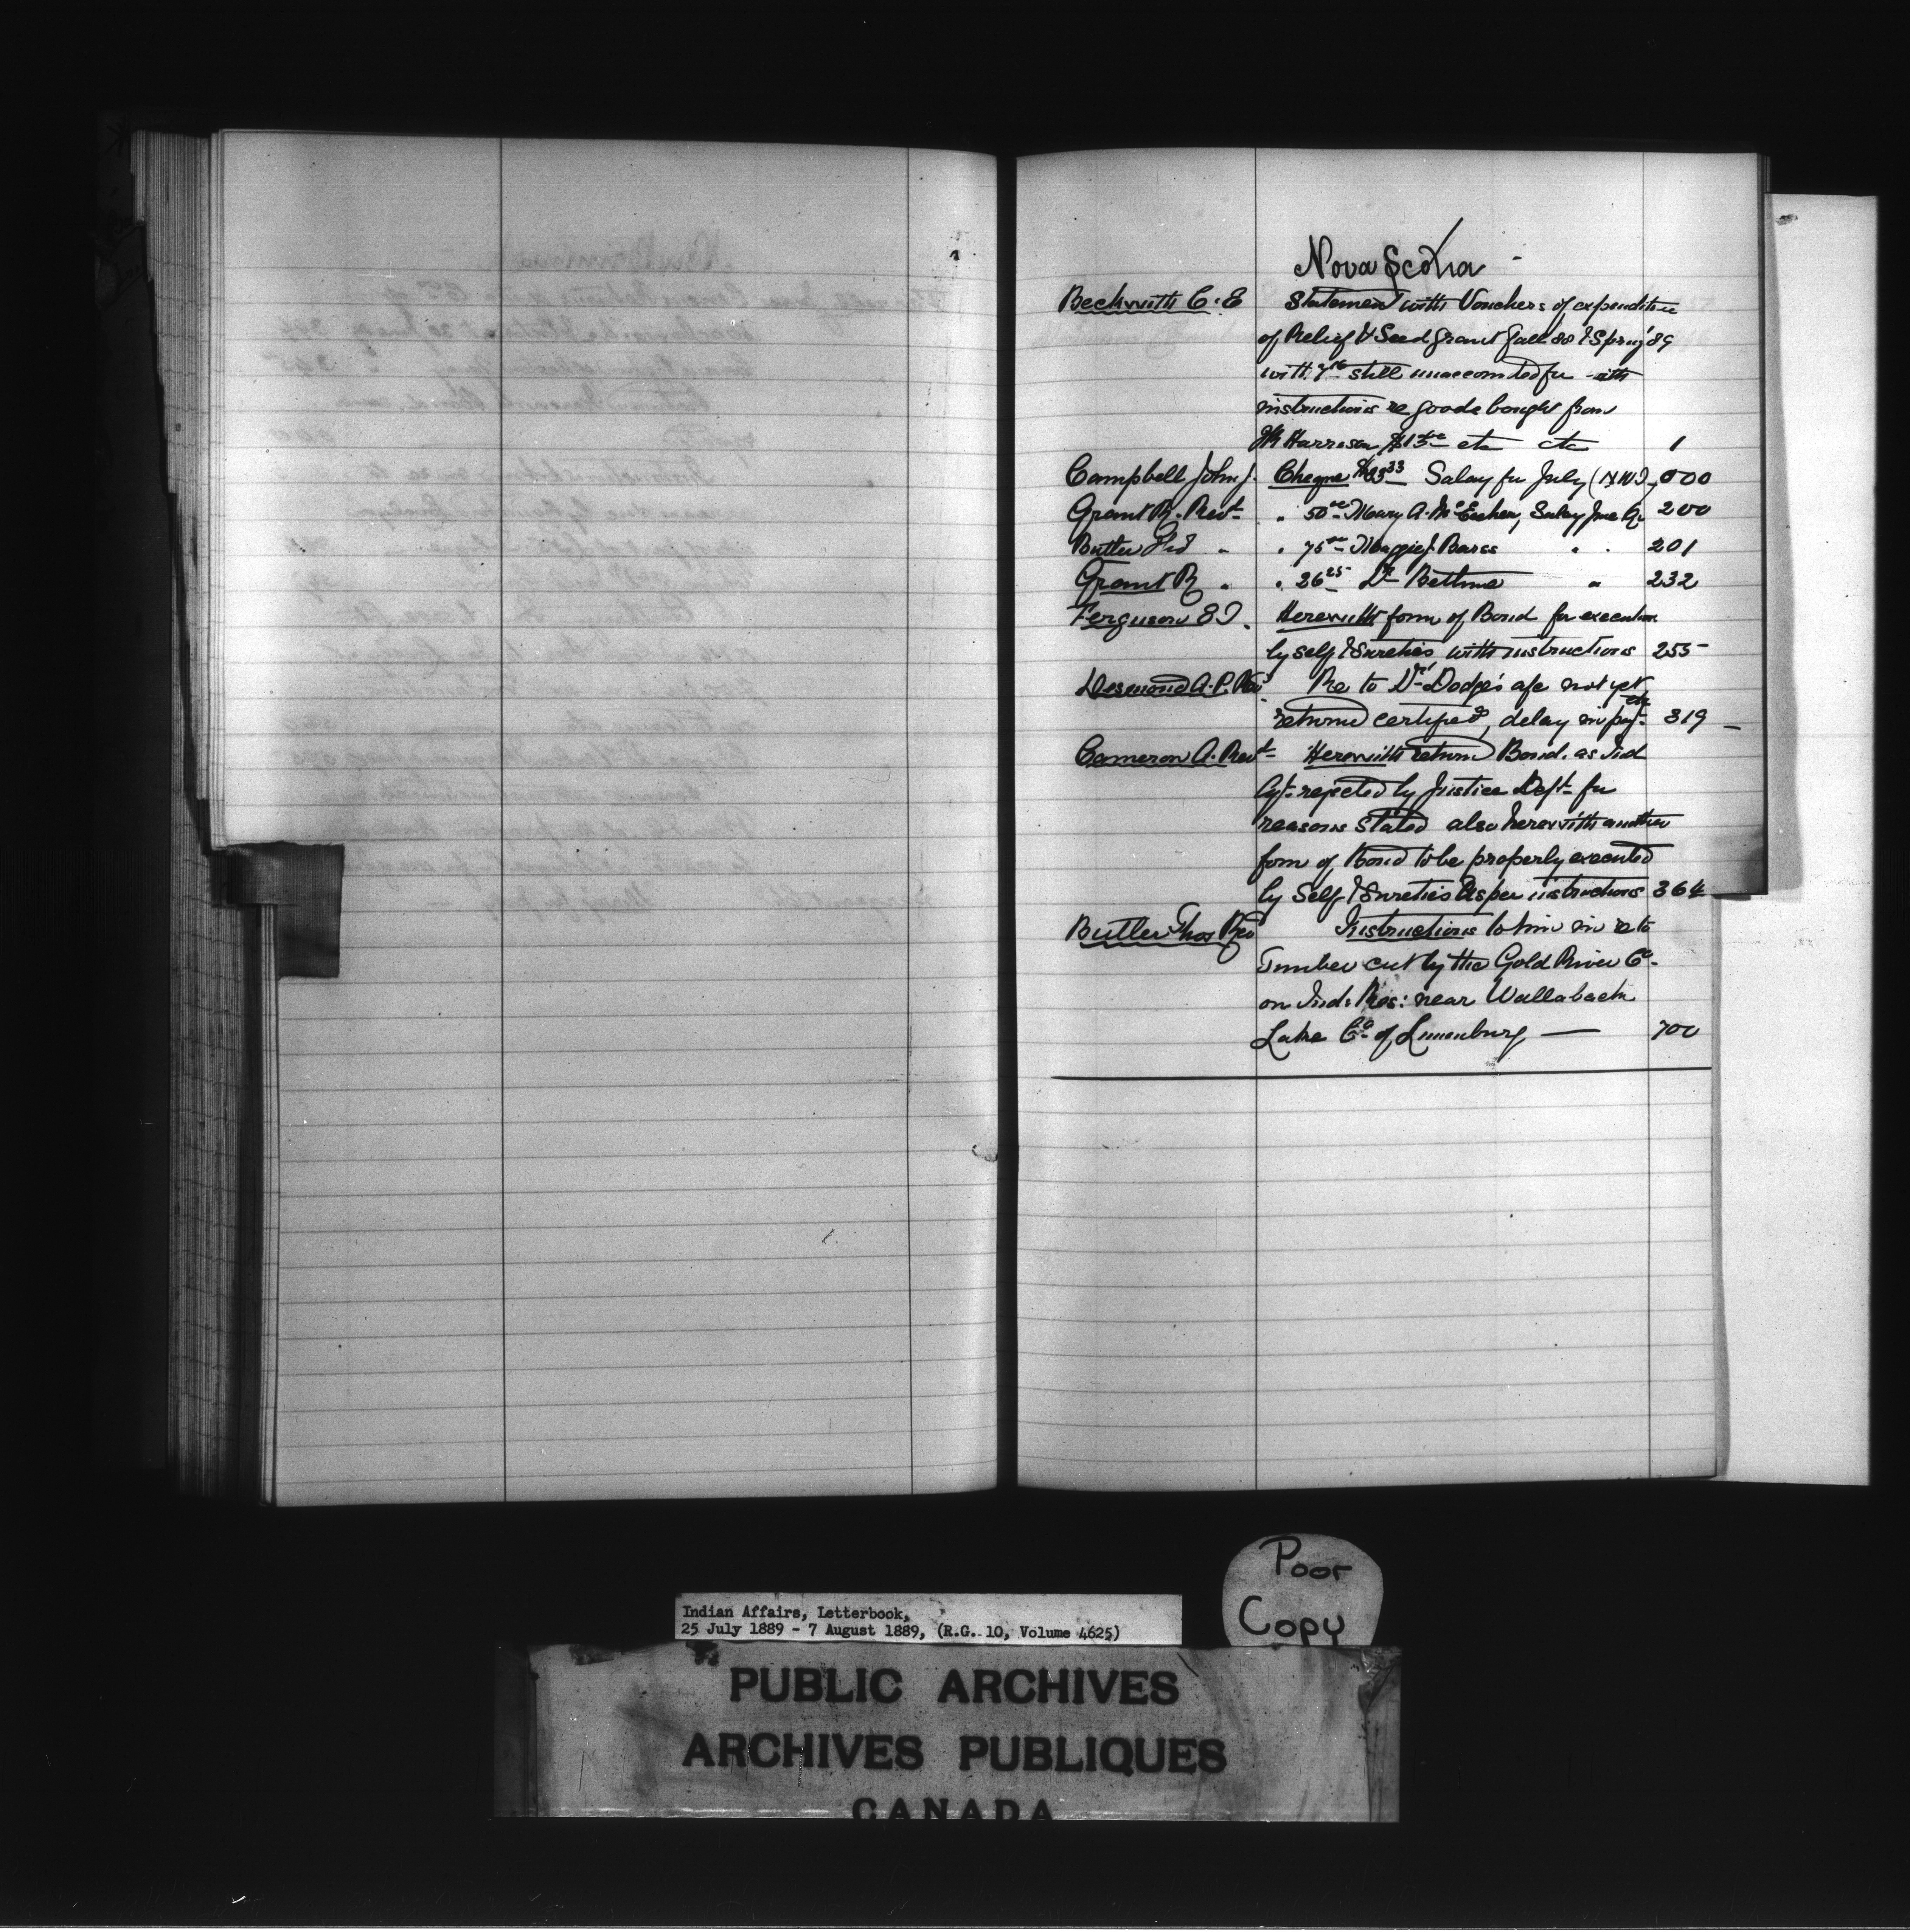 Nova Scotia
Beckwith C. E Statement with Vouchers of expenditure
of Relief & Seed grant fall 88 & Spring '89
with still unaccounted for with
instructions re goods bought from
Harrison etc etc 1
Campbell John J. Cheque $83 33 Salary for July (N.W.) 000
Grant R. Revd " 50 00 Mary A. McEachen, Salary June Qr 200
Butler " " 75 00 Maggie J. Barss " " 201
Grant R " " 26 25 Dr Bethune " 232
Ferguson Herewith form of Bond for execution
by self & Sureties with instructions 255
Desmond A. P. Rev Re to Dr Dodge's a/c not yet
returned certified, delay in payt etc 319
Cameron A. Revd Herewith return Bond. as Ind
Agt rejected by Justice Dept for
reasons stated also herewith another
form of Bond to be properly executed
by Self & Sureties as per instructions 364
Butler Thos Rev Instructions to him in re to
Timber cut by the Gold River Co
on Ind: Res: near Wallaback
Lake Co of Lunenburg — 700
Poor
Copy
Indian Affairs, Letterbook,
25 July 1889 - 7 August 1889, (R.G. 10, Volume 4625)
PUBLIC ARCHIVES
ARCHIVES PUBLIQUES
CANADA